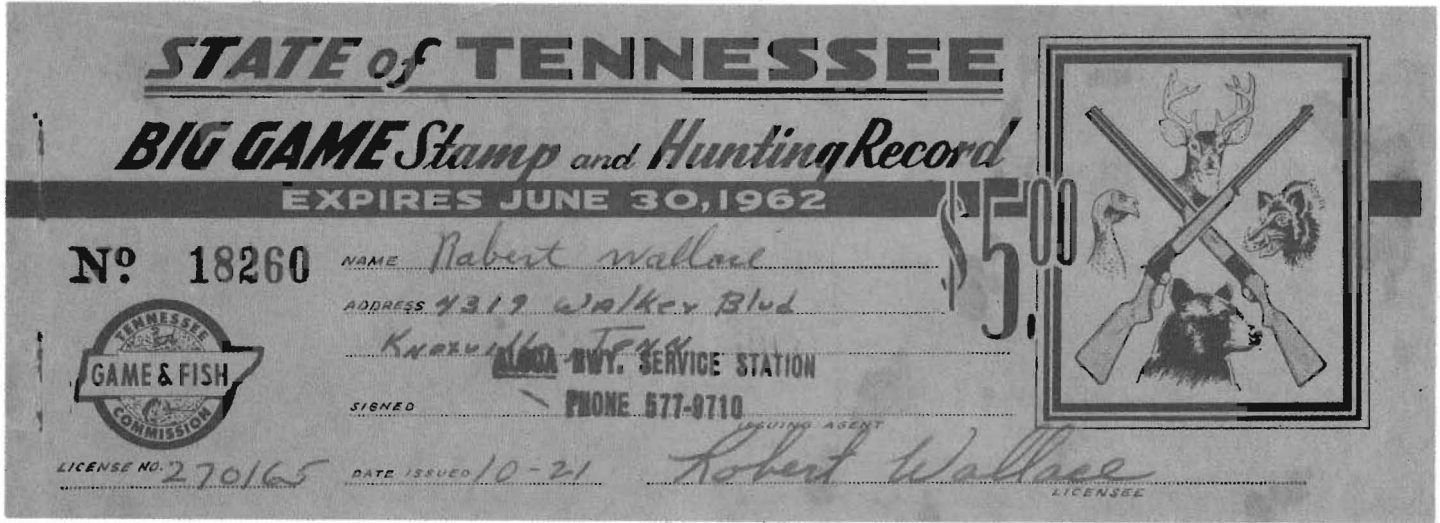 STATE of TENNESSEE
BIG GAME Stamp and Hunting Record
EXPIRES JUNE 30, 1962
$5.00
Nº 18260
NAME Robert Wallace
ADDRESS 4319 Walker Blvd
Knoxville Tenn
ALCOA HWY. SERVICE STATION
PHONE 577-9710
SIGNED
ISSUING AGENT
TENNESSEE
GAME & FISH
COMMISSION
LICENSE NO. 270165 DATE ISSUED 10-21 Robert Wallace
LICENSEE